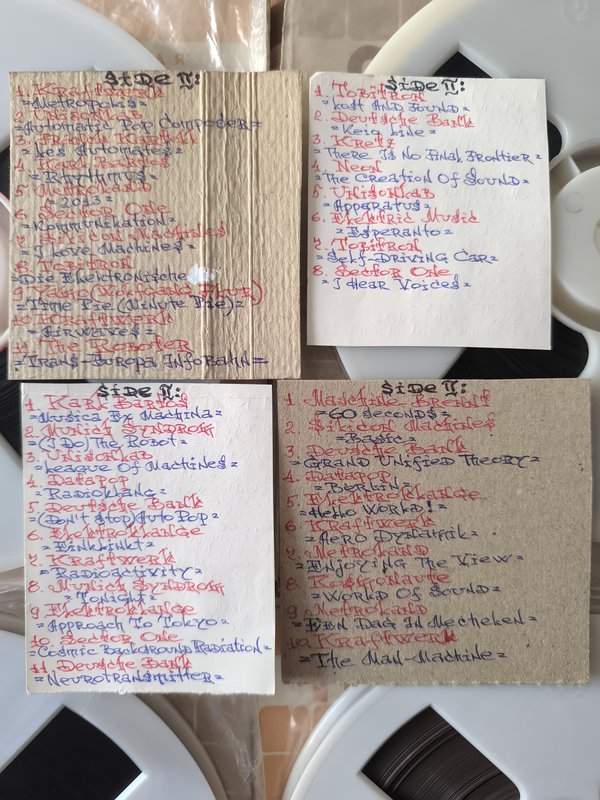 Side II:
1. Kraftwerk
=Metropolis=
2 Unisonlab
=Automatic Pop Composer=
=Les Automates=
=Rhythmus=
5. Metroland
=2013=
6. Sector One
=Kommunikation=
7. Silicon Machines
=I Love Machines=
8. Tobitron
=Die Elektronische
9. (Wolfgang Flür)
=Time Pie (Minute Pie)=
10. Kraftwerk
=Airwaves=
11. The Roboter
=Trans-Europa Infobahn=
Side II:
1. Tobitron
=Lost And Found=
2. Deutsche Bank
=Keiq Line=
3. Kretz
=There Is No Final Frontier=
4. Neon
=The Creation Of Sound=
5. Unisonlab
=Apparatus=
6. Elektric Music
=Esperanto=
7. Tobitron
=Self-Driving Car=
8. Sector One
=I Hear Voices=
Side II:
1. Karl Bartos
=Musica Ex Machina=
2. Munich Syndrom
=(I Do) The Robot=
3. Unisonlab
=League Of Machines=
4. Datapop
=Radioklang=
5. Deutsche Bank
=(Don't Stop) Auto Pop=
6. Elektroklänge
=Einklinkt=
7. Kraftwerk
=Radioactivity=
8. Munich Syndrom
=Tonight=
9 Elektroklänge
=Approach To Tokyo=
10. Sector One
=Cosmic Background Radiation=
11. Deutsche Bank
=Neurotransmitter=
Side II:
1. Maschine Brennt
=60 Seconds=
2. Silicon Machines
=Basic=
3. Deutsche Bank
=Grand Unified Theory=
4. Datapop
=Berlin=
5. Elektroklänge
=Hello World!=
6. Kraftwerk
=Aero Dynamik=
7. Metroland
=Enjoying The View=
8. Kosmonaute
=World Of Sound=
9. Metroland
=Een Dag In Mechelen=
10. Kraftwerk
=The Man-Machine=